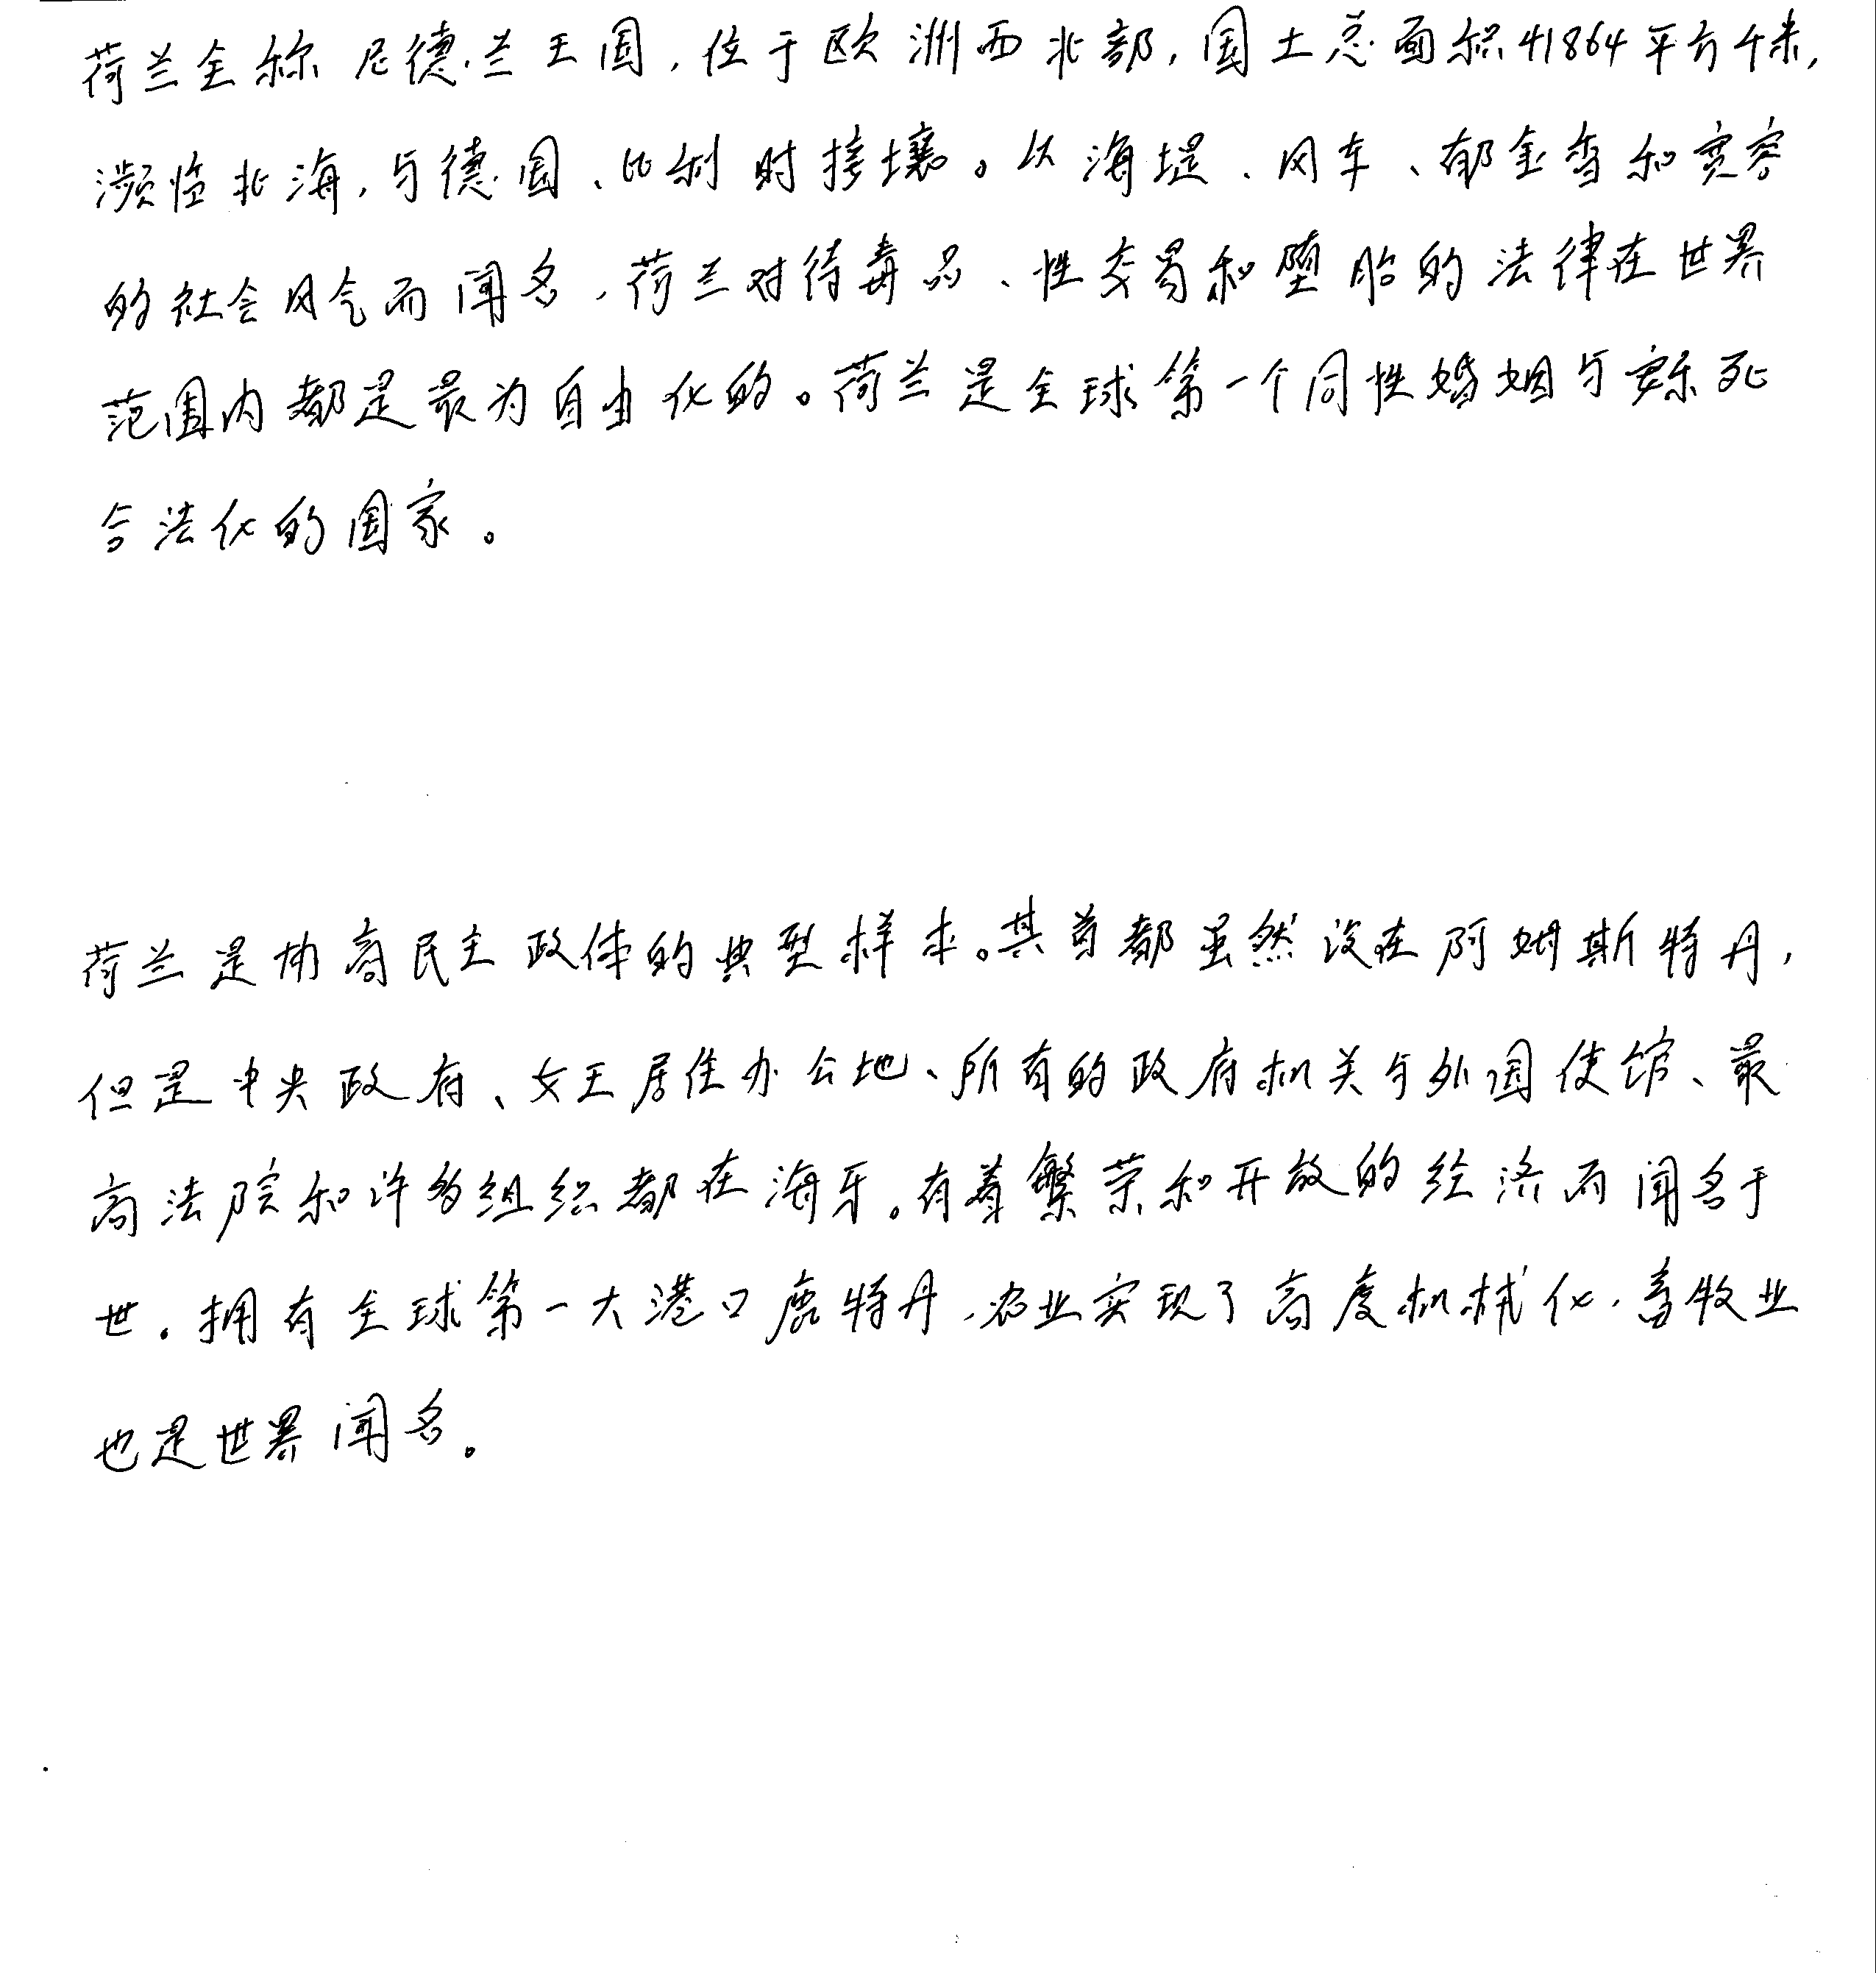 荷兰全称尼德兰王国,位于欧洲西北部,国土总面积41864平方千米,
濒临北海,与德国、比利时接壤。以海堤、风车、郁金香和宽容
的社会风气而闻名,荷兰对待毒品、性交易和堕胎的法律在世界
范围内都是最为自由化的。荷兰是全球第一个同性婚姻与安乐死
合法化的国家。
荷兰是协商民主政体的典型样本。其首都虽然设在阿姆斯特丹,
但是中央政府、女王居住办公地、所有的政府机关与外国使馆、最
高法院和许多组织都在海牙。有着繁荣和开放的经济而闻名于
世。拥有全球第一大港口鹿特丹,农业实现了高度机械化,畜牧业
也是世界闻名。